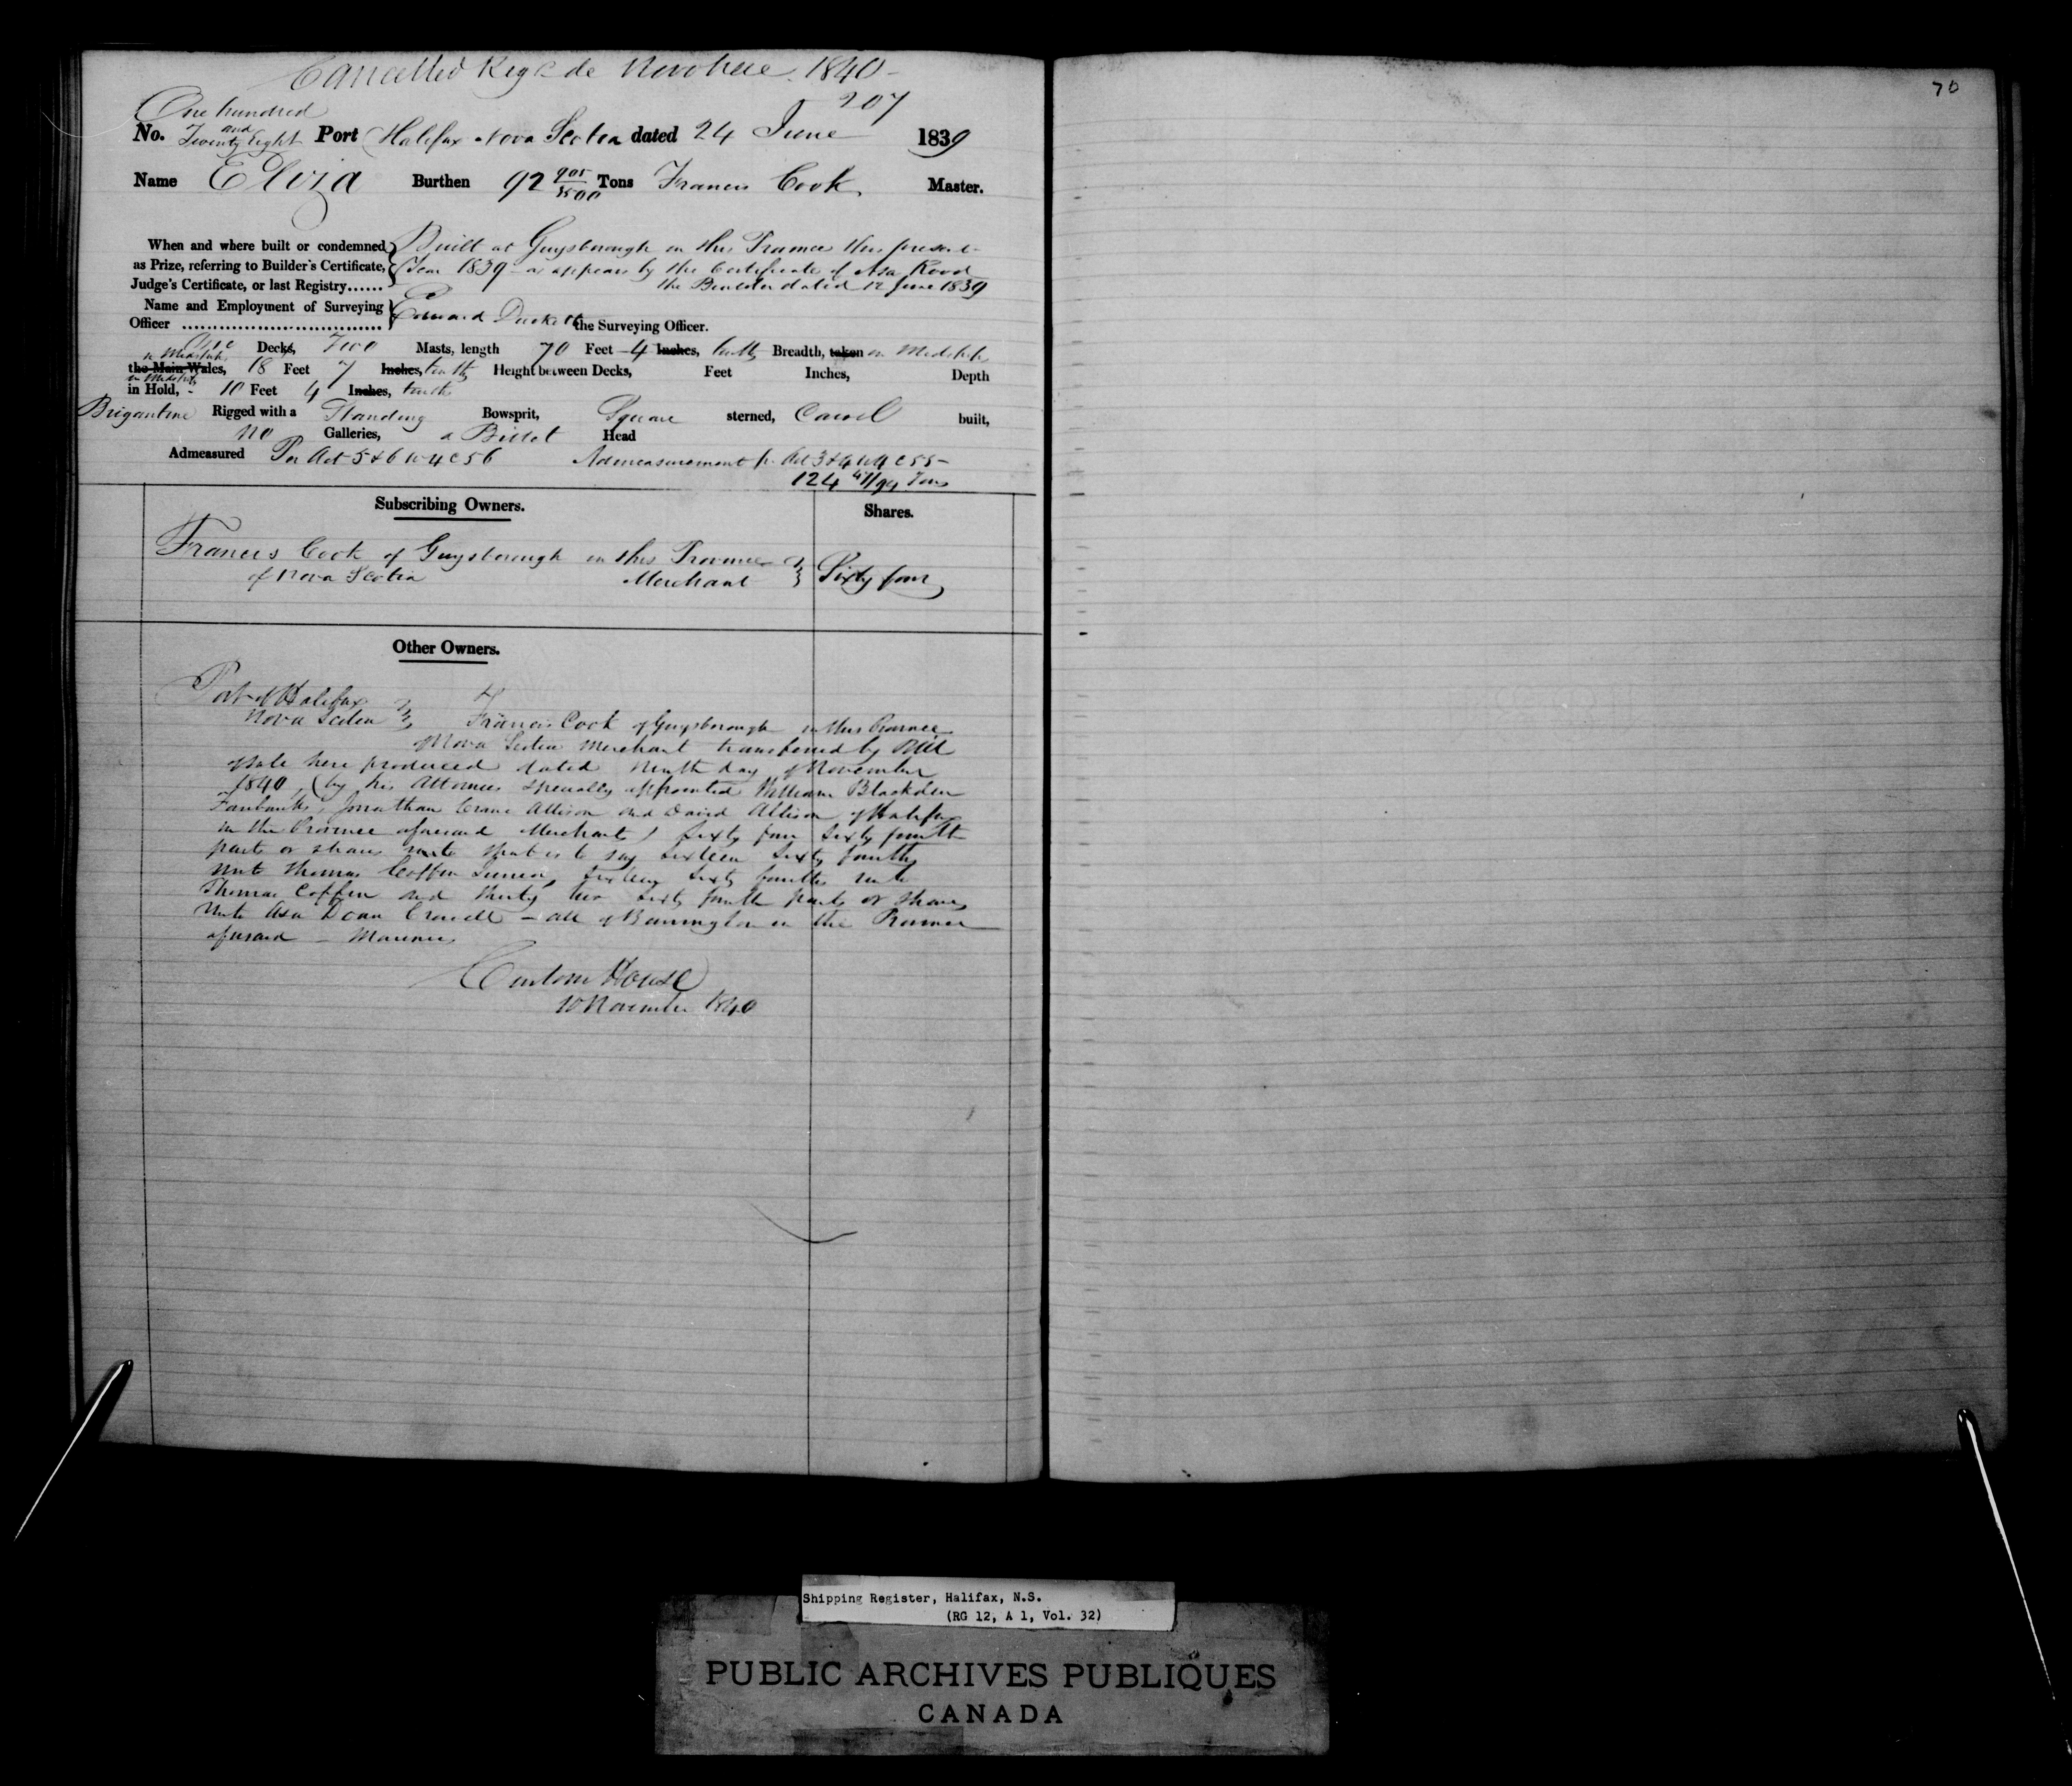 Cancelled Reg'd de Novo here 1840 -
70
207
One hundred
and
No. Twenty Eight Port Halifax Nova Scotia dated 24 June 1839
Name Eliza Burthen 92 905/3500 Tons Francis Cook Master.
When and where built or condemned Built at Guysborough in this Province this present
as Prize, referring to Builder's Certificate, Year 1839 - as appears by the Certificate of Asa
Judge's Certificate, or last Registry...... the Builder dated 12 June 1839
Name and Employment of Surveying
Officer Edward Duckett the Surveying Officer.
One Decks, Two Masts, length 70 Feet 4 Inches, tenths Breadth, taken in Midships
in Midships
the Main Wales, 18 Feet 7 Inches, tenths Height between Decks, Feet Inches, Depth
in Midships
in Hold, - 10 Feet 4 Inches, tenths
Brigantine Rigged with a Standing Bowsprit, Square sterned, Carvel built,
no Galleries, a Billet Head
Admeasured Per Act 5 & 6 W 4 C 56 Admeasurement pr. Act 3 & 4 W 4 C 55 -
124 /94 Tons
Subscribing Owners. Shares.
Francis Cook of Guysborough in this Province
of Nova Scotia Merchant Sixty four
Other Owners.
Port of Halifax
Nova Scotia Francis Cook of Guysborough in this Province
of Nova Scotia Merchant transferred by Bill
of Sale here produced dated Ninth day of November
1840, (by his Attornies specially appointed William Blackden
Fairbanks, Jonathan Crane Allison and David Allison of Halifax
in the Province aforesaid Merchants) Sixty four Sixty fourth
parts or shares that is to say Sixteen Sixty fourths
unto Thomas Coffin Senior, Sixteen Sixty fourths unto
Thomas Coffin and Thirty two Sixty fourth parts or Shares
unto Asa Doan Crowell - all of Barrington in the Province
aforesaid - Mariners
Custom House
10 November 1840
Shipping Register, Halifax, N.S.
(RG 12, A 1, Vol. 32)
PUBLIC ARCHIVES PUBLIQUES
CANADA